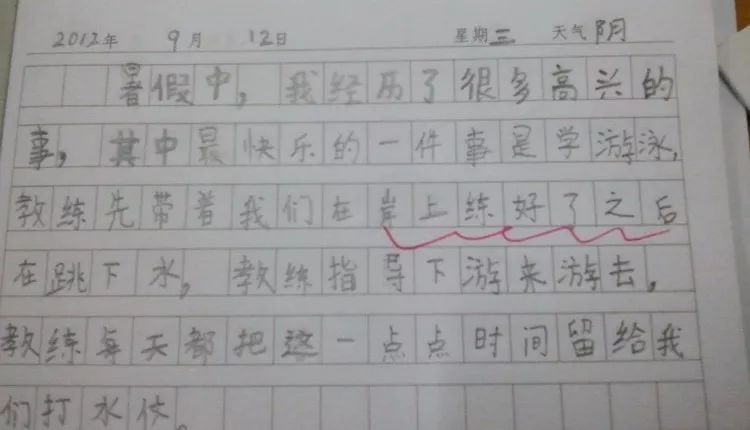 2012年 9月 12日 星期三 天气阴
暑假中，我经历了很多高兴的
事，其中最快乐的一件事是学游泳，
教练先带着我们在岸上练好了之后
在跳下水，教练指导下游来游去，
教练每天都把这一点点时间留给我
们打水仗。